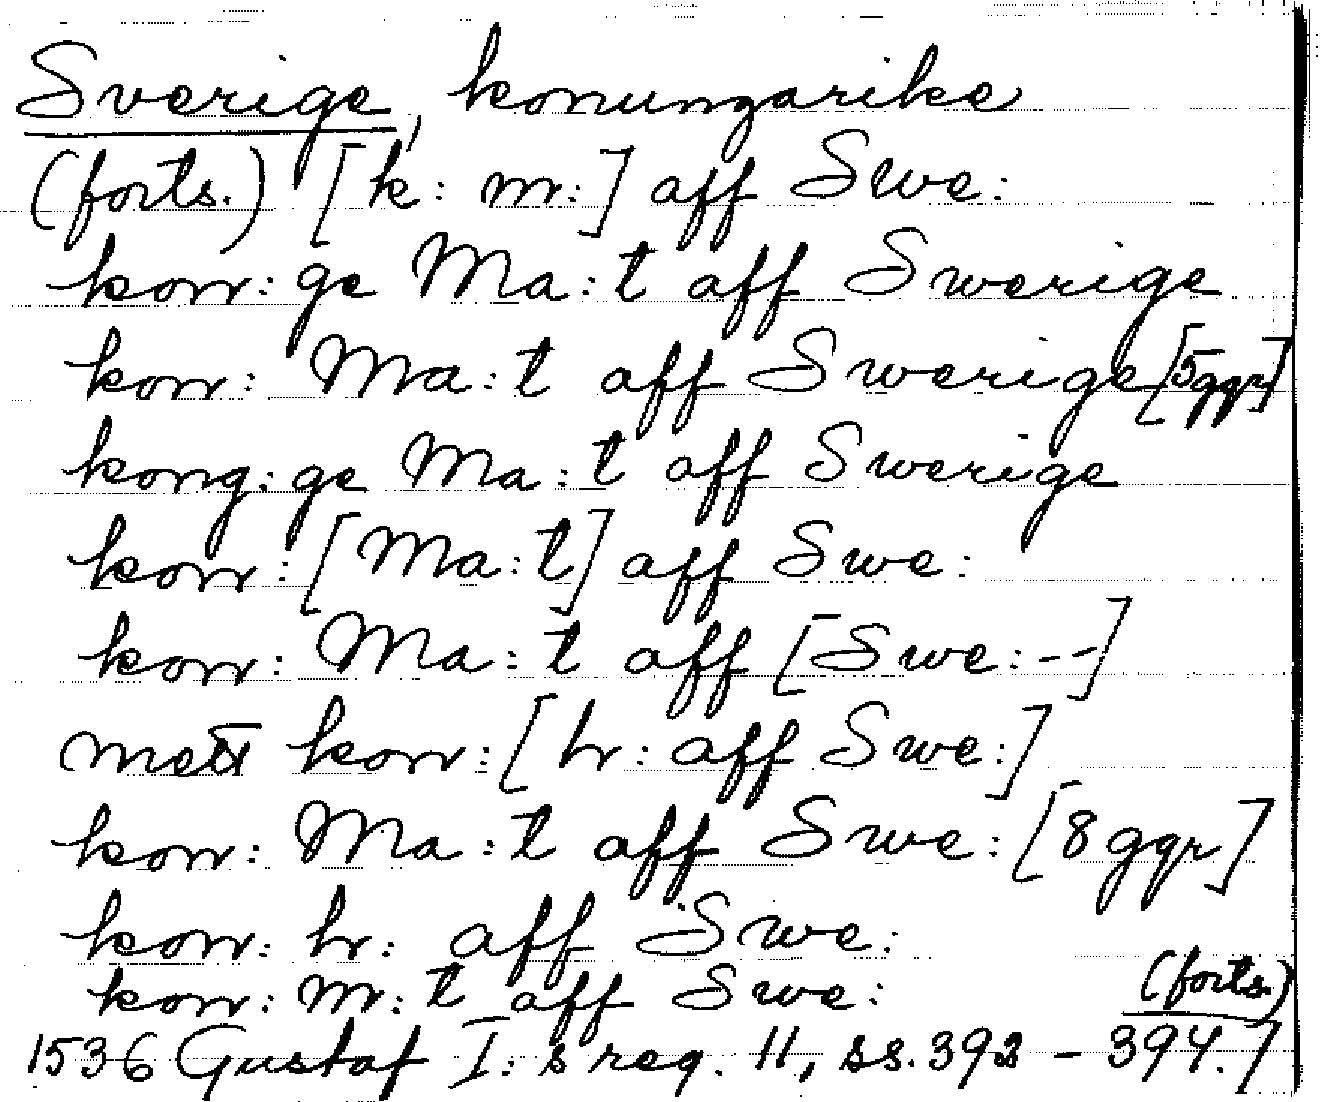 Sverige, konungarike
(forts.) [k: m:] aff Swe:
kon: ge Ma:t aff Swerige
kon: Ma:t aff Swerige [5 ggr]
kong: ge Ma:t aff Swerige
kon: [Ma:t] aff Swe:
kon: Ma:t aff [Swe:--]
mett kon: [hr: aff Swe:]
kon: Ma:t aff Swe: [8 ggr]
kon: hr: aff Swe:
kon: m:t aff Swe: (forts.)
1536 Gustaf I:s reg. 11, ss. 393 - 394.